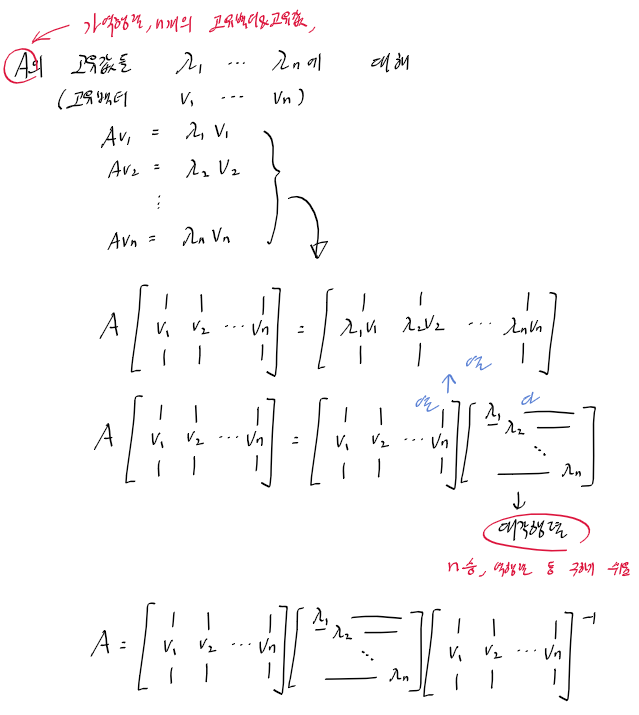 가역행렬, n개의 고유벡터&고유값,
A의 고유값들 λ₁ ⋯ λₙ에 대해
(고유벡터 v₁ ⋯ vₙ)
Av₁ = λ₁ v₁
Av₂ = λ₂ v₂
⋮
Avₙ = λₙ vₙ
A [v₁ v₂ ⋯ vₙ] = [λ₁v₁ λ₂v₂ ⋯ λₙvₙ]
A [v₁ v₂ ⋯ vₙ] = [v₁ v₂ ⋯ vₙ] [λ₁ λ₂ ⋱ λₙ]
대각행렬
n승, 역행렬 등 구하기 쉬움
A = [v₁ v₂ ⋯ vₙ] [λ₁ λ₂ ⋱ λₙ] [v₁ v₂ ⋯ vₙ]⁻¹